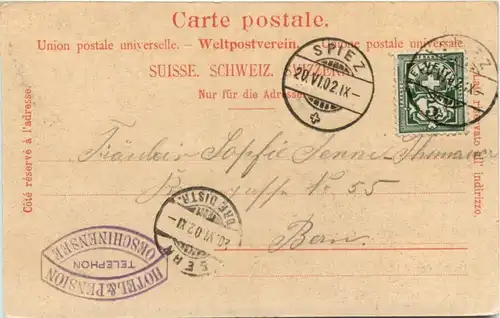 Carte postale.
Union postale universelle. – Weltpostverein. – Unione postale universale.
SUISSE. SCHWEIZ. SVIZZERA.
Nur für die Adresse.
Côté réservé à l'adresse.
riservato all' indirizzo.
SPIEZ
20.VI.02.IX-
5
Fräulein Sophie Jenni-
No 55
Bern.
BERN
20.VI.02.XI-
BRF. DISTR.
HOTEL & PENSION
OESCHINENSEE
TELEPHON